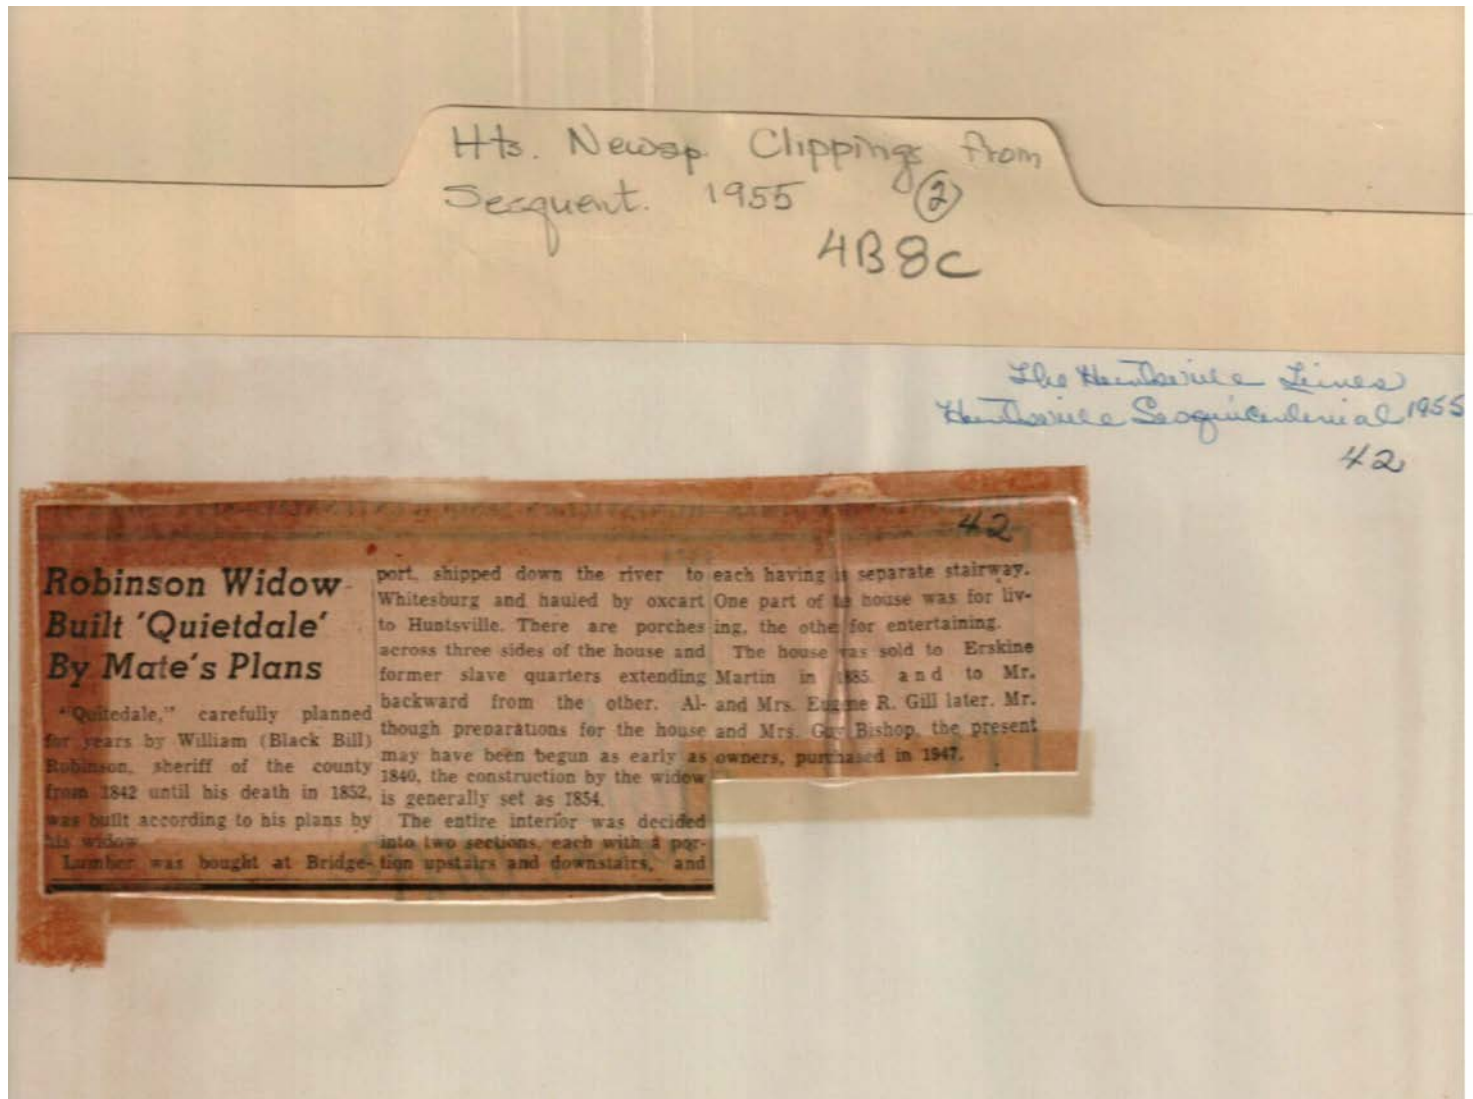 Hts. Newsp. Clippings from
Sesquent. 1955 2
4B8C
The Huntsville Times
Huntsville Sesquicentenial 1955
42
42
Robinson Widow
Built 'Quietdale'
By Mate's Plans
"Quitedale," carefully planned
for years by William (Black Bill)
Robinson, sheriff of the county
from 1842 until his death in 1852,
was built according to his plans by
his widow.
Lumber was bought at Bridge-
port, shipped down the river to
Whitesburg and hauled by oxcart
to Huntsville. There are porches
across three sides of the house and
former slave quarters extending
backward from the other. Al-
though preparations for the house
may have been begun as early as
1840, the construction by the widow
is generally set as 1854.
The entire interior was decided
into two sections, each with a por-
tion upstairs and downstairs, and
each having separate stairway.
One part of house was for liv-
ing, the othe for entertaining.
The house was sold to Erskine
Martin in 1885. and to Mr.
and Mrs. Eugene R. Gill later. Mr.
and Mrs. Guy Bishop, the present
owners, purchased in 1947.